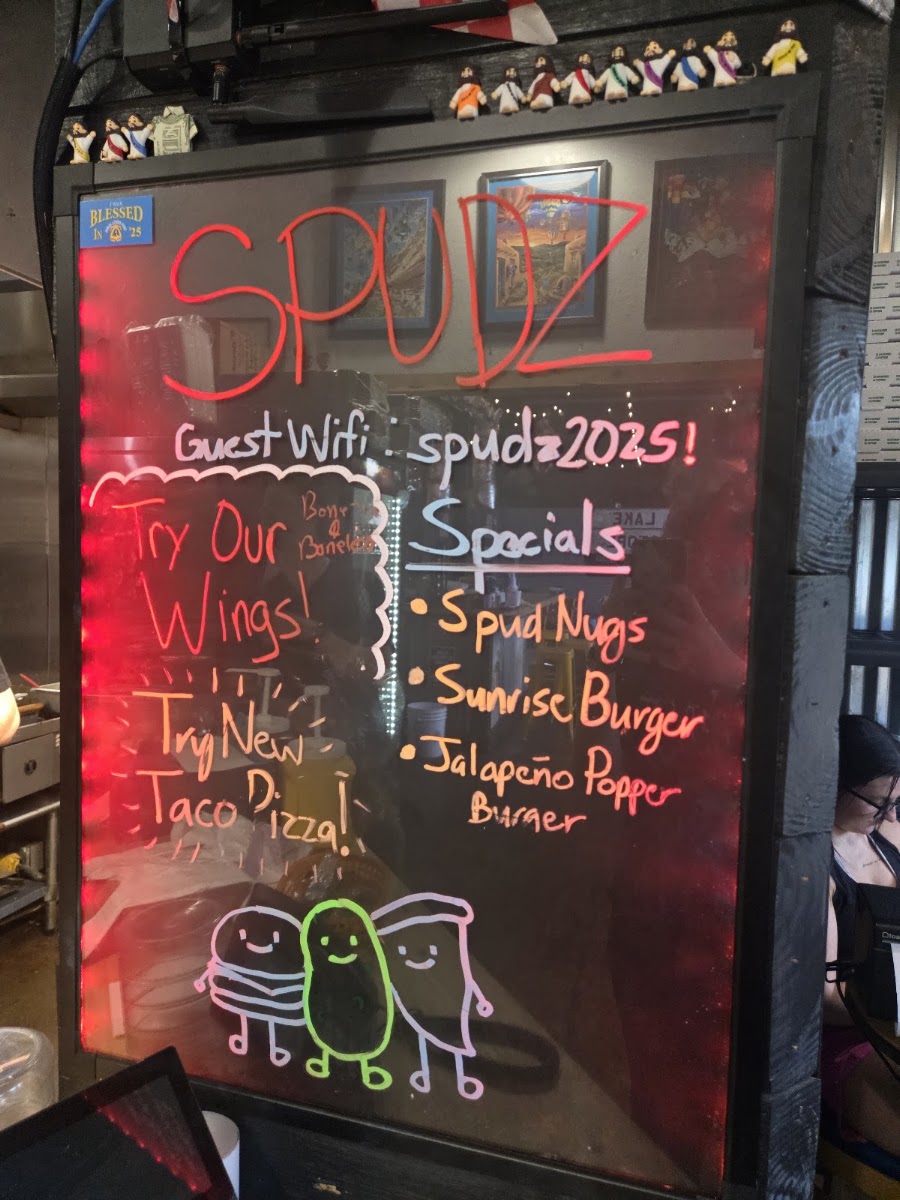 BLESSED
IN '25
SPUDZ
Guest Wifi : spudz2025!
Try Our
Bone
&
Boneless
Wings!
Try New
Taco Pizza!
Specials
• Spud Nugs
• Sunrise Burger
• Jalapeño Popper
Burger
LAKE